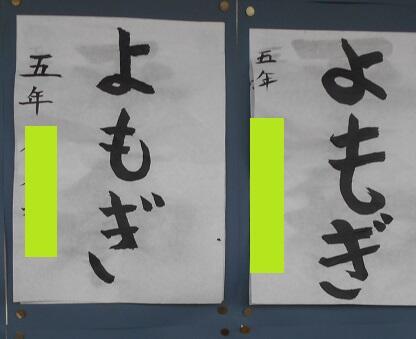 よもぎ
五年
よもぎ
五年